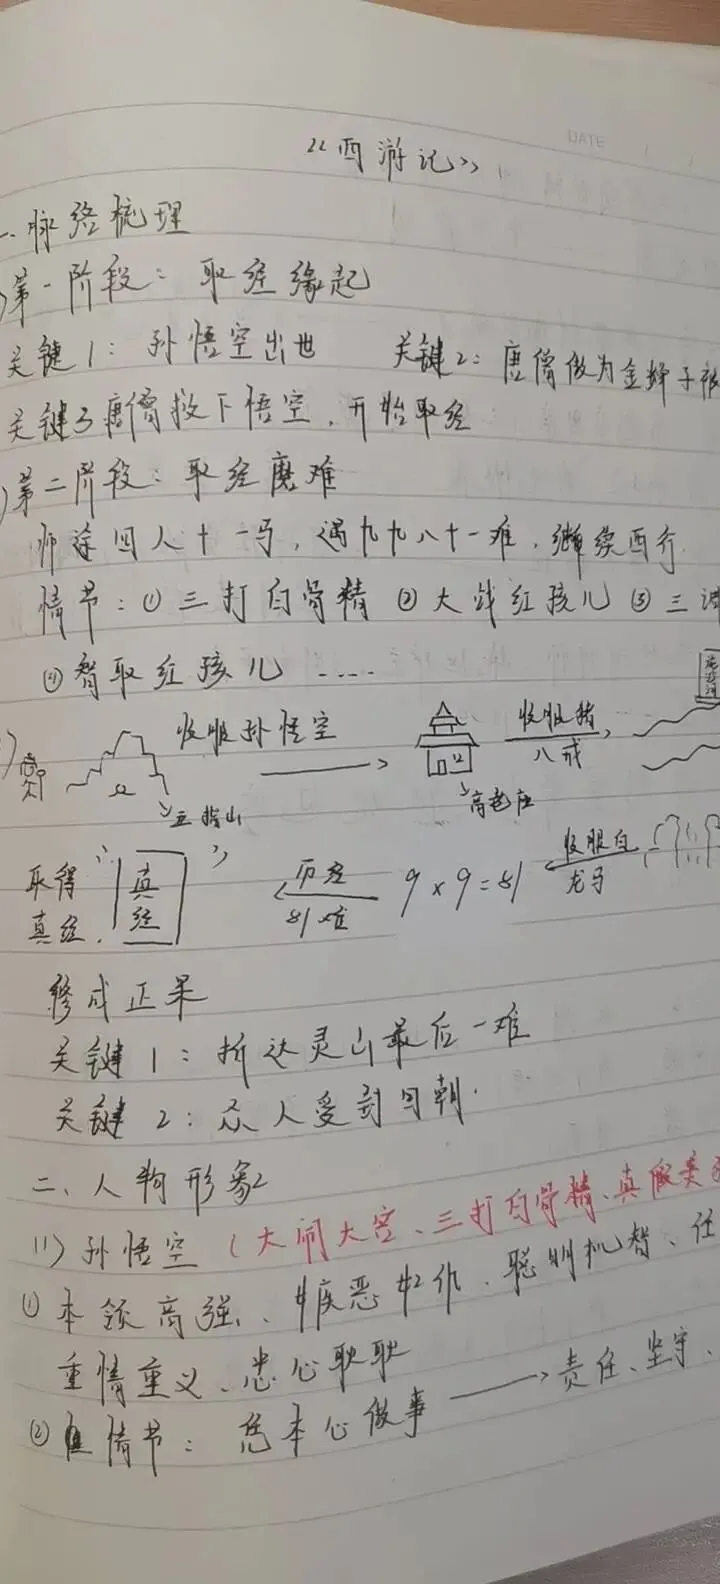 DATE
《西游记》
一.脉络梳理
第一阶段：取经缘起
关键1：孙悟空出世 关键2：唐僧做为金蝉子被
关键3唐僧救下悟空，开始取经
第二阶段：取经磨难
师徒四人十一马，遇九九八十一难，继续西行.
情节：①三打白骨精 ②大战红孩儿 ③三调
④智取红孩儿 ……
收服孙悟空 收服猪八戒
五指山 高老庄
取得真经. 真经 历经81难 9×9=81 收服白龙马
修成正果
关键1：折达灵山最后一难
关键2：众人受封回朝.
二、人物形象
(1)孙悟空(大闹天宫、三打白骨精、真假美
①本领高强、疾恶如仇、聪明机智、任
重情重义、忠心耿耿
②情节：凭本心做事 → 责任、坚守、